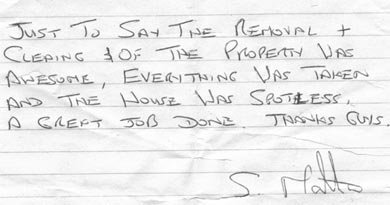 JUST TO SAY THE REMOVAL +
CLEARING OF THE PROPERTY WAS
AWESOME, EVERYTHING WAS TAKEN
AND THE HOUSE WAS SPOTLESS.
A GREAT JOB DONE. THANKS GUYS.
S.